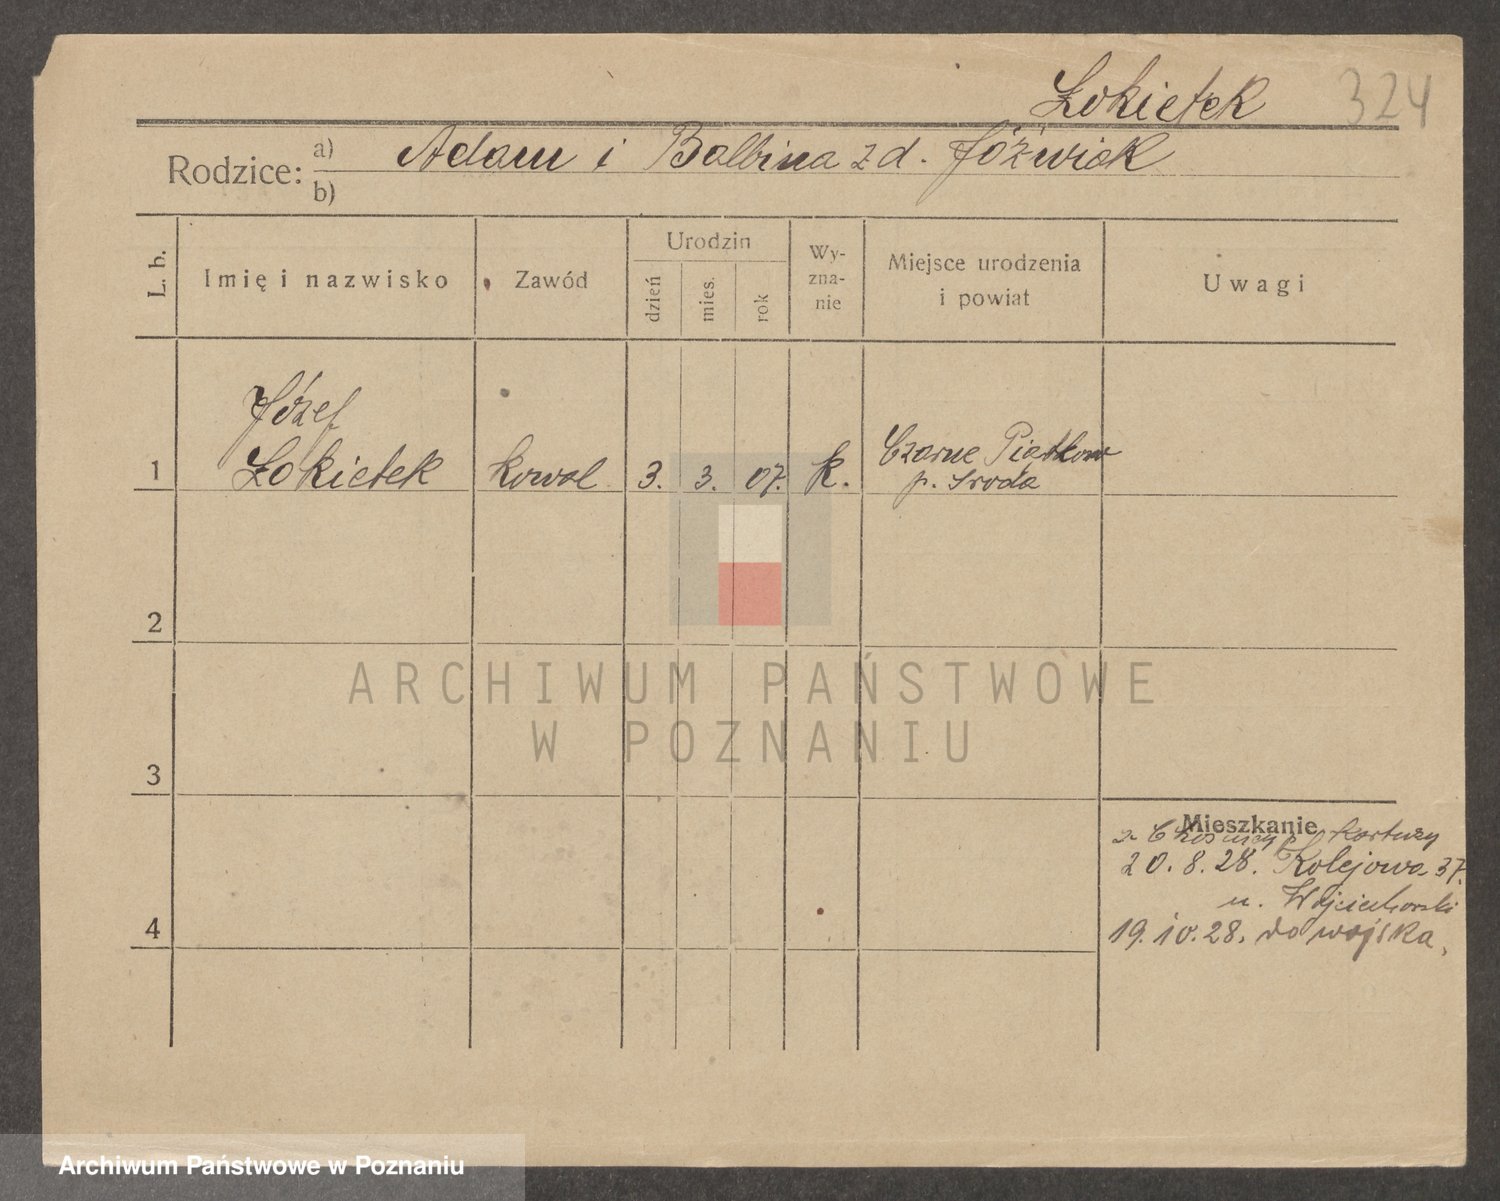 Łokietek 324
Rodzice: a) Adam i Balbina z d. Jóźwiak
b)
L. b.
Imię i nazwisko
Zawód
Urodzin
dzień
mies.
rok
Wy-
zna-
nie
Miejsce urodzenia
i powiat
Uwagi
Józef
1 Łokietek kowal 3. 3. 07. k. Czarne Piątkowo
p. Środa
2
3
4
Mieszkanie
z p. Kartuzy
20. 8. 28. Kolejowa 37.
u. Wojciechorski
19. 10. 28. do wojska.
ARCHIWUM PAŃSTWOWE
W POZNANIU
Archiwum Państwowe w Poznaniu